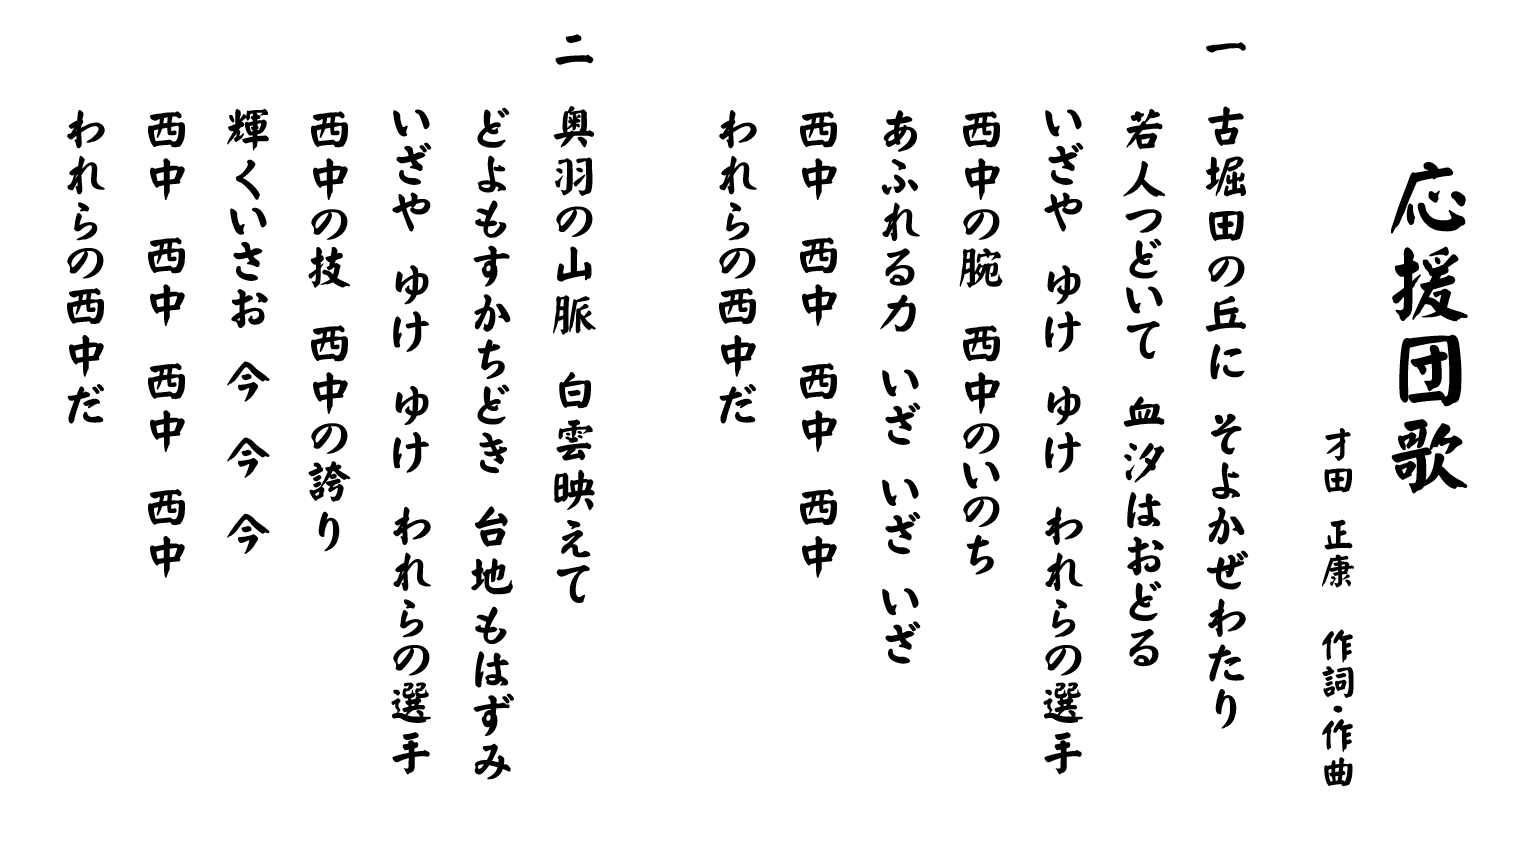 応援団歌
才田 正康 作詞・作曲
一 古堀田の丘に そよかぜわたり
若人つどいて 血汐はおどる
いざや ゆけ ゆけ われらの選手
西中の腕 西中のいのち
あふれる力 いざ いざ いざ
西中 西中 西中 西中
われらの西中だ
二 奥羽の山脈 白雲映えて
どよもすかちどき 台地もはずみ
いざや ゆけ ゆけ われらの選手
西中の技 西中の誇り
輝くいさお 今 今 今
西中 西中 西中 西中
われらの西中だ